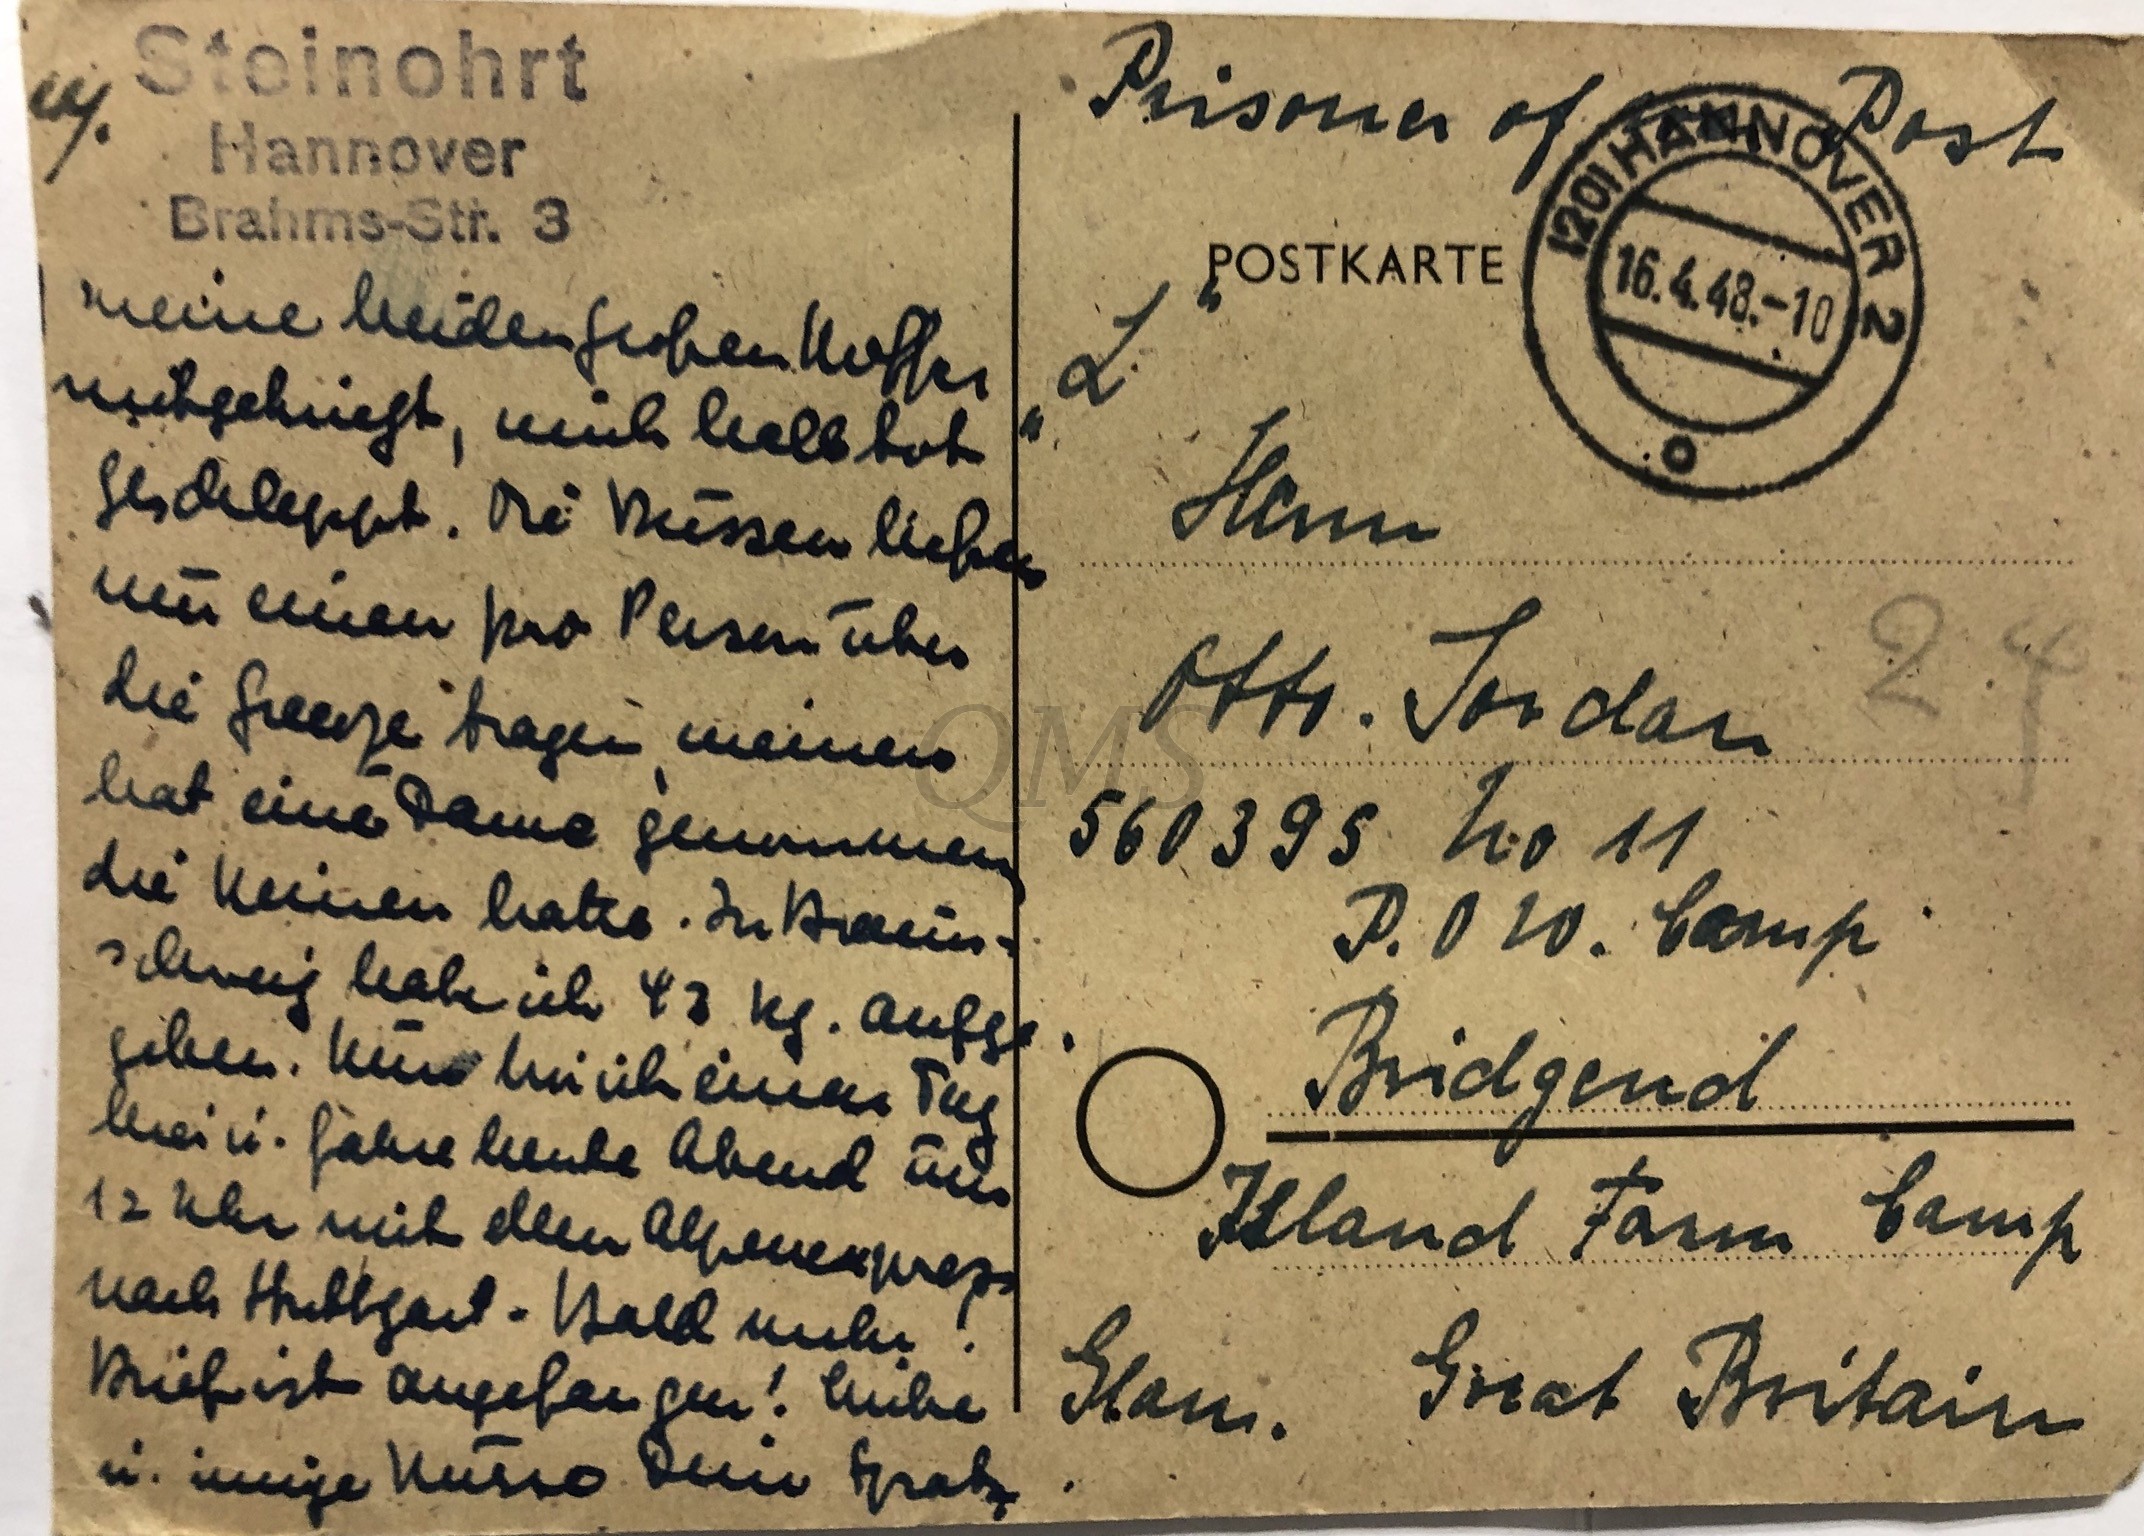 Steinohrt
Hannover
Brahms-Str. 3
meine beiden großen Koffer
mitgekriegt, mich halb tot
geschleppt. Die Russen ließen
nur einen pro Person über
die Grenze tragen, meinen
hat eine Dame genommen
die keinen hatte. In Braun-
schweig habe ich 43 kg. aufge-
geben. Nun bin ich einen Tag
hier u. fahre heute Abend um
12 Uhr mit dem Alpenexpress
nach Stuttgart. Bald mehr!
Brief ist angefangen! Liebe
u. innige Küsse Dein Spatz.
Prisoner of War Post
POSTKARTE
1201 HANNOVER 2
16.4.48.-10
o
"L"
Herrn
Otto Jordan
24
560395 No 11
P.O W. Camp
Bridgend
Island Farm Camp
Glam. Great Britain
QMS